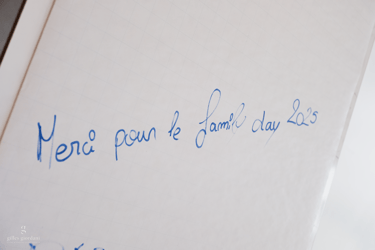 Merci pour le family day 2025